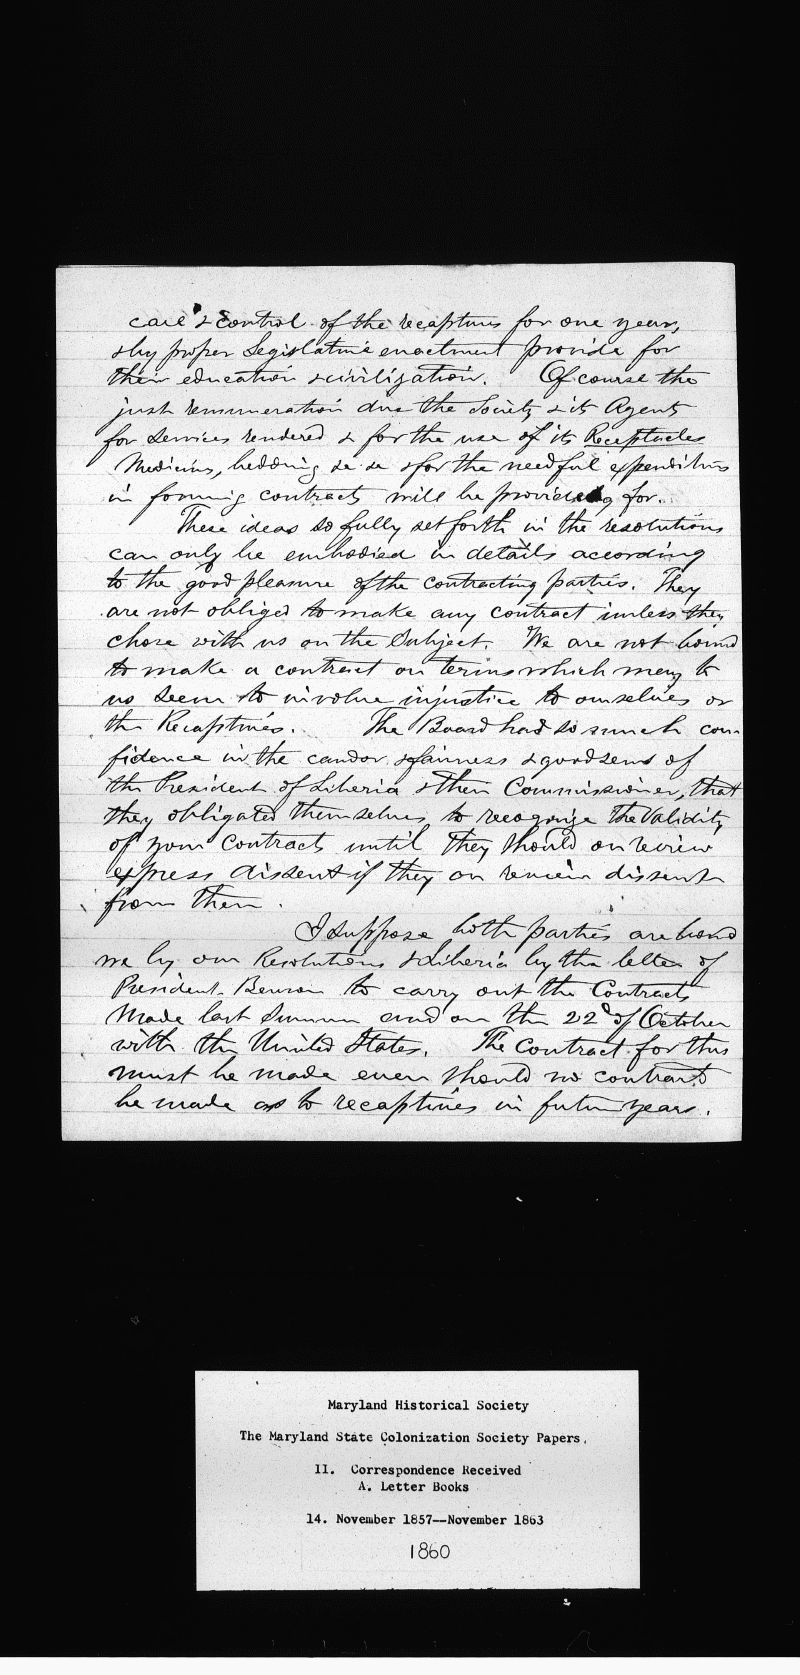 care & control of the recaptives for one year,
& by proper Legislative enactment provide for
their education & civilization. Of course the
just remuneration due the Society & its Agents
for services rendered & for the use of its Receptacles
Medicines, bedding &c &c & for the needful expenditures
in forming contracts will be provided for.
These ideas so fully set forth in the resolutions
can only be embodied in details according
to the good pleasure of the contracting parties. They
are not obliged to make any contract unless they
chose with us on the Subject. We are not bound
to make a contract on terms which may to
us seem to involve injustice to ourselves or
the Recaptives. The Board had so much con-
fidence in the candor & fairness & good sense of
the President of Liberia & their Commissioner, that
they obligated themselves to recognize the Validity
of your Contracts until they should on review
express dissent if they on review dissent
from them.
I suppose both parties are bound
we by our Resolutions & Liberia by the letter of
President Benson to carry out the Contracts
Made last Summer and on the 22d of October
with the United States. The Contract for this
must be made even should no contract
be made as to recaptives in future years.
Maryland Historical Society
The Maryland State Colonization Society Papers.
II. Correspondence Received
A. Letter Books
14. November 1857--November 1863
1860